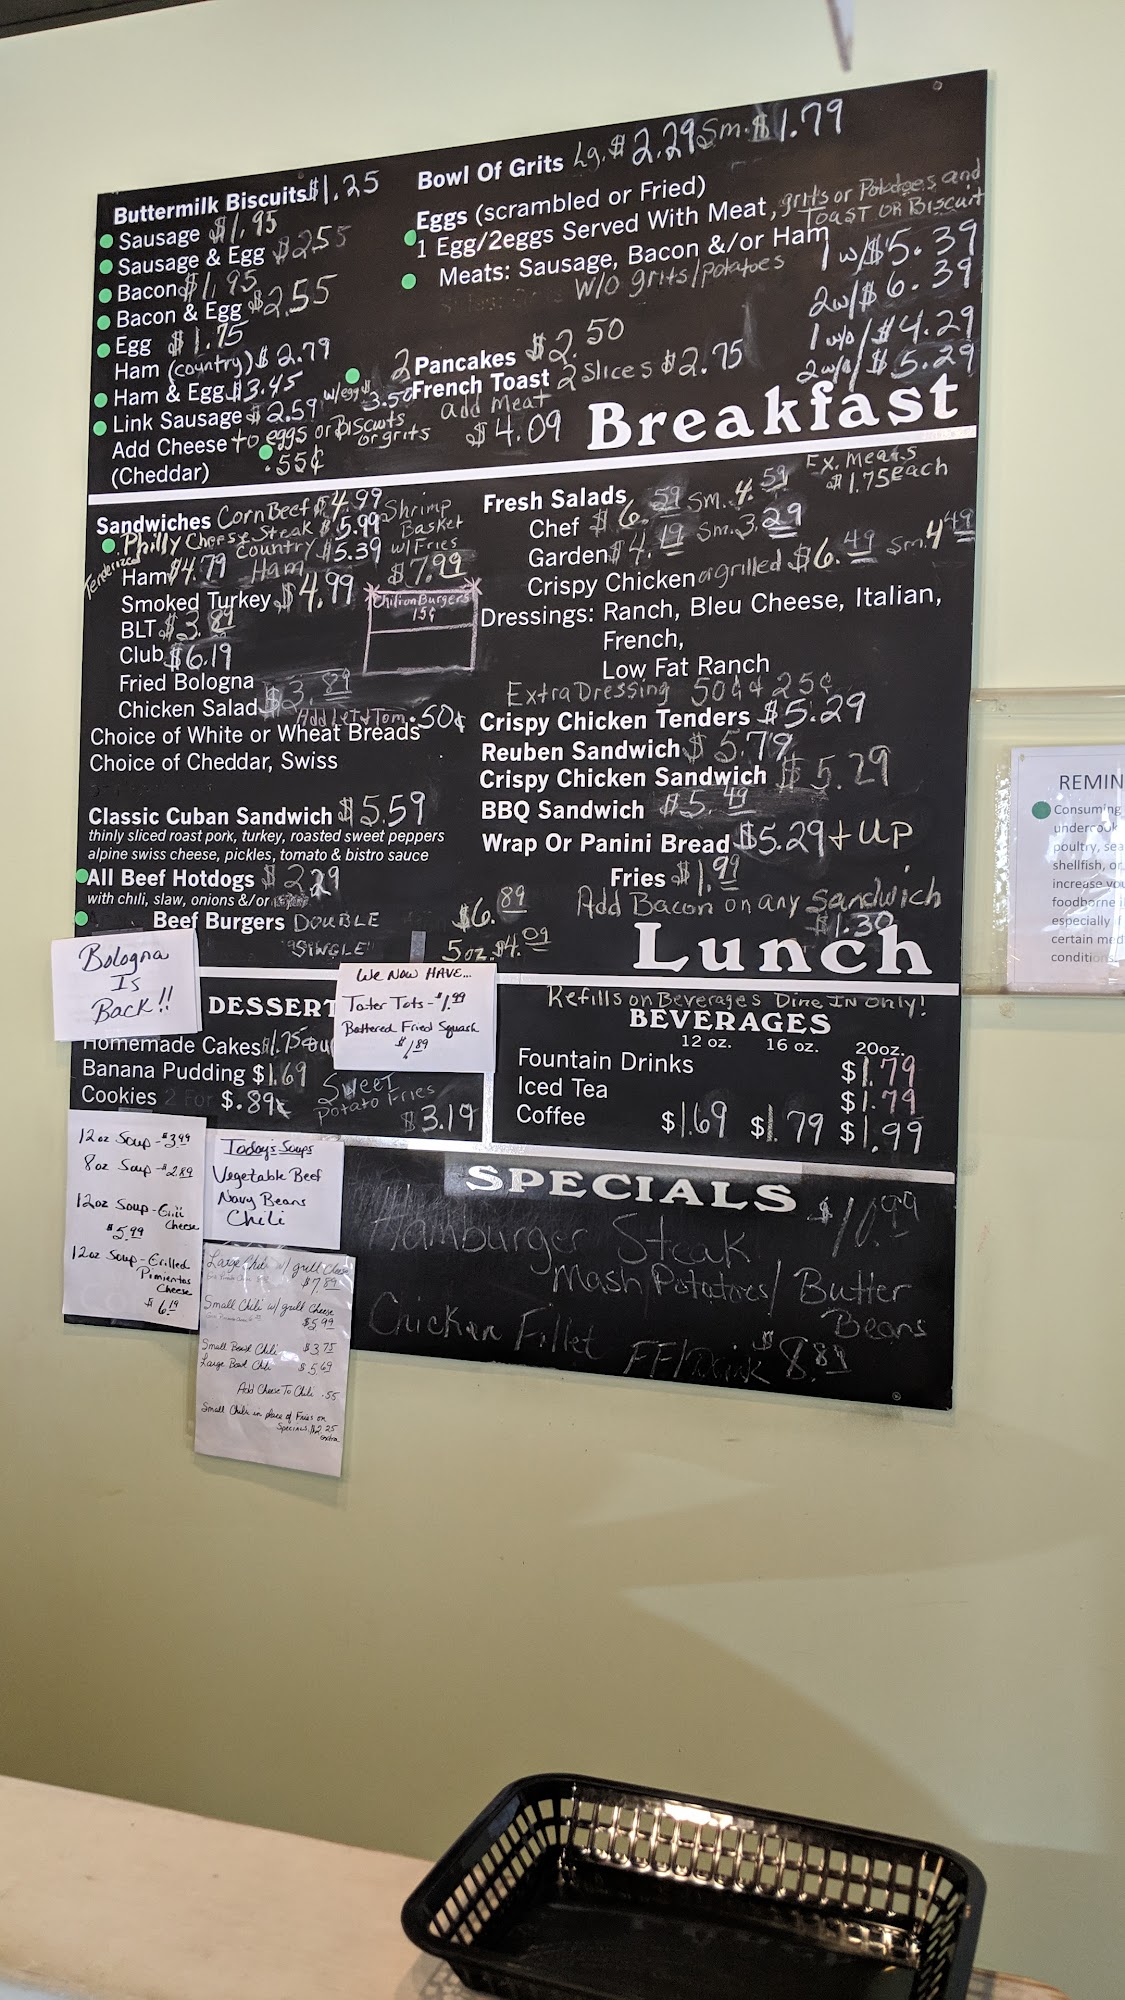 Buttermilk Biscuits $1.25
Sausage $1.95
Sausage & Egg $2.55
Bacon $1.95
Bacon & Egg $2.55
Egg $1.75
Ham (country) $2.79
Ham & Egg $3.45
Link Sausage $2.59 w/egg $3.50
Add Cheese to eggs or Biscuits or grits
(Cheddar) .55¢
Bowl Of Grits Lg. $2.29 Sm. $1.79
Eggs (scrambled or Fried)
1 Egg/2eggs Served With Meat, grits or Potatoes and
Toast or Biscuit
Meats: Sausage, Bacon &/or Ham
1 w/ $5.39
w/o grits/potatoes
2 w/ $6.39
1 w/o/ $4.29
2 w/o/ $5.29
2 Pancakes $2.50
French Toast 2 Slices $2.75
add Meat
$4.09
Breakfast
Sandwiches Corn Beef $4.99
Philly Cheese Steak $5.99
Country Ham $5.39
Shrimp
Basket
w/Fries
$7.99
Tenderized
Ham $4.79
Smoked Turkey $4.99
BLT $3.89
Club $6.19
Fried Bologna
Chicken Salad $3.89
Add Let & Tom .50¢
Chili on Burgers
15¢
Choice of White or Wheat Breads
Choice of Cheddar, Swiss
Classic Cuban Sandwich $5.59
thinly sliced roast pork, turkey, roasted sweet peppers
alpine swiss cheese, pickles, tomato & bistro sauce
All Beef Hotdogs $2.29
with chili, slaw, onions &/or
Beef Burgers DOUBLE $6.89
"SINGLE" 5oz. $4.09
Ex. Meats
$1.75 each
Fresh Salads
Chef $6.59 Sm. 4.59
Garden $4.19 Sm. 3.29
Crispy Chicken or grilled $6.49 Sm. 4.49
Dressings: Ranch, Bleu Cheese, Italian,
French,
Low Fat Ranch
Extra Dressing 50¢ & 25¢
Crispy Chicken Tenders $5.29
Reuben Sandwich $5.79
Crispy Chicken Sandwich $5.29
BBQ Sandwich $5.49
Wrap Or Panini Bread $5.29 + UP
Fries $1.99
Add Bacon on any Sandwich
$1.30
Lunch
Bologna
Is
Back!!
DESSERT
Homemade Cakes $1.75
Banana Pudding $1.69
Cookies 2 For $.89¢
We Now Have...
Tater Tots - $1.99
Battered Fried Squash
$1.89
Sweet
Potato Fries
$3.19
Refills on Beverages Dine In Only!
BEVERAGES
12 oz. 16 oz. 20oz.
Fountain Drinks $1.79
Iced Tea $1.79
Coffee $1.69 $1.79 $1.99
12oz Soup - $3.99
8oz Soup - $2.89
12oz Soup - Grill
Cheese
$5.99
12oz Soup - Grilled
Pimientos
Cheese
$6.19
Today's Soups
Vegetable Beef
Navy Beans
Chili
Large Chili w/ grill Cheese
$7.89
Small Chili w/ grill Cheese
$5.99
Small Bowl Chili $3.75
Large Bowl Chili $5.69
Add Cheese To Chili .55
Small Chili in place of Fries on
Specials $2.25
extra
SPECIALS
Hamburger Steak $10.99
Mash Potatoes/ Butter
Beans
Chicken Fillet
FF/Drink $8.89
REMIN
Consuming
undercook
poultry, sea
shellfish, or
increase you
foodborne i
especially if
certain med
conditions